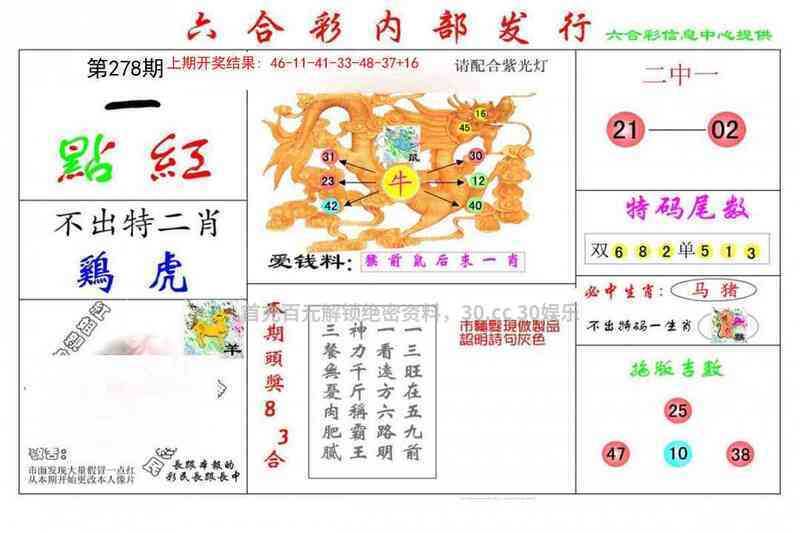 六合彩内部发行
六合彩信息中心提供
第278期
上期开奖结果：46-11-41-33-48-37+16
请配合紫光灯
一
點 紅
不出特二肖
鷄 虎
羊
市面发现大量假冒一点红
从本期开始更改本人像片
長跟本報的
彩民長跟長中
16
45
鼠
31
30
23
牛
12
42
40
爱钱料：
猴前鼠后来一肖
首充百元解锁绝密资料，30.cc 30娱乐
本期頭獎
8 3合
一三旺在五九前
一看遠方六路明
神力千斤稱霸王
三餐無憂肉肥膩
市麵髮現倣製品
認明詩句灰色
二中一
21 02
特码尾数
双 6 8 2 单 5 1 3
必中生肖：
马 猪
不出特码一生肖
猴
拖版吉数
25
47 10 38